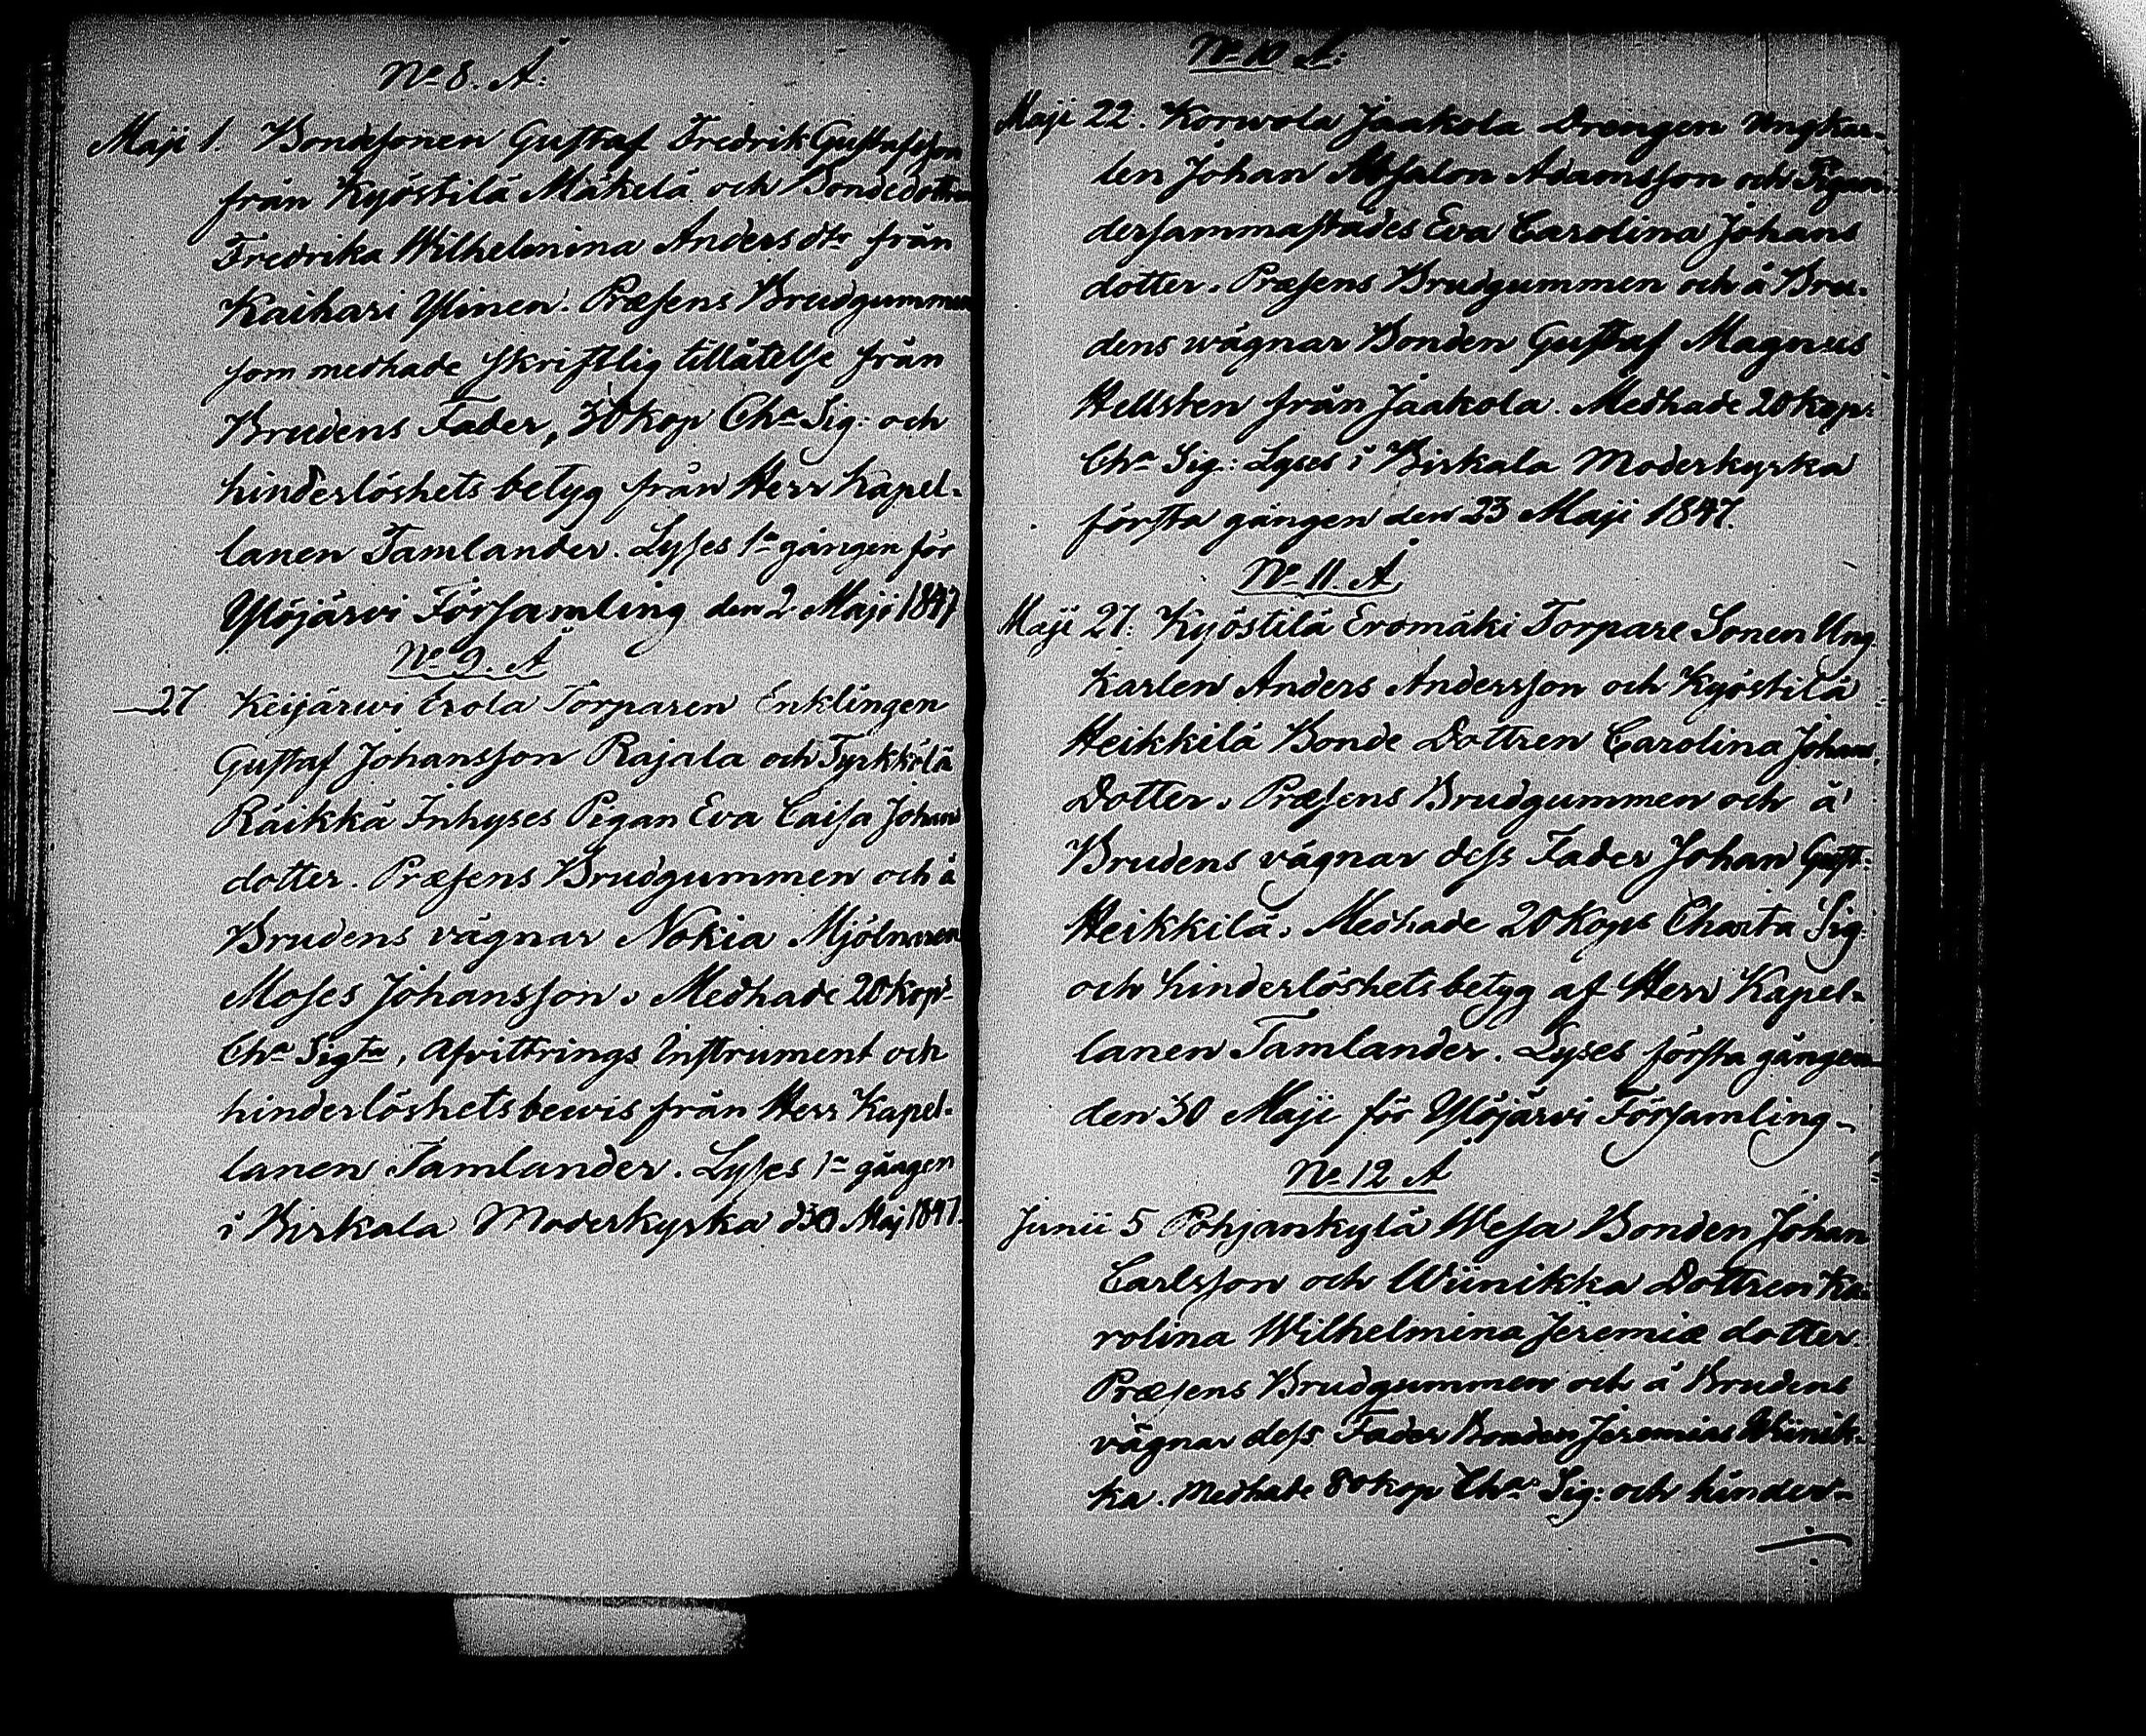 No 8. Å:
Maji 1. Bondsonen Gustaf Fredrik Gustafsson
från Kyöstilä Mäkelä och Bondedottren
Fredrika Wilhelmina Andersdtr från
Kaihari Ylinen. Præsens Brudgummen
som medhade skriftlig tillåtelse från
Brudens Fader, 30 kop Cha Sig: och
hinderlöshets betyg från Herr Kapel-
lanen Tamlander. Lyses 1a gången för
Ylöjärvi Församling den 2 Maji 1847
No 9. Å
— 27 Keijärwi Erola Torparen Enklingen
Gustaf Johansson Rajala och Tyrkkölä
Räikkä Inhyses Pigan Eva Caisa Johans
dotter. Præsens Brudgummen och å
Brudens vägnar Nokia Mjölnaren
Moses Johansson. Medhade 20 kop:
Cha Sigta, Afvittrings Instrument och
hinderlöshets bewis från Herr Kapel-
lanen Tamlander. Lyses 1a gången
i Birkala Moderkyrka d 30 Maj 1847.
No 10 Å:
Maji 22. Korwola Jaakola Drengen Ungkar-
len Johan Absalon Adamsson och Pigan
dersammastädes Eva Carolina Johans
dotter. Præsens Brudgummen och å Bru-
dens wägnar Bonden Gustaf Magnus
Hellsten från Jaakola. Medhade 20 kop:
Cha Sig: Lyses i Birkala Moderkyrka
första gången den 23 Maji 1847.
No 11. Å
Maji 27. Kyöstilä Eromäki Torpare Sonen Ung
Karlen Anders Andersson och Kyöstilä
Heikkilä Bonde Dottren Carolina Johans
Dotter. Præsens Brudgummen och å
Brudens vägnar dess Fader Johan Gust:
Heikkilä. Medhade 20 Kops Charta Sig:
och hinderlöshets betyg af Herr Kapel-
lanen Tamlander. Lyses första gången
den 30 Maji för Ylöjärwi Församling.
No 12 Å
Junii 5 Pohjankylä Wesa Bonden Johan
Carlsson och Wiinikka Dottren Ka-
rolina Wilhelmina Jeremiæ dotter.
Præsens Brudgummen och å Brudens
vägnar dess Fader Bonden Jeremias Wiinik-
ka. Medhade 80 kop Cha Sig: och hinder-